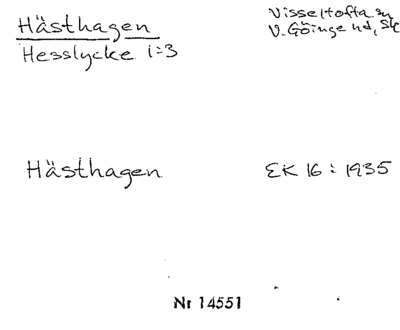 Hästhagen
Hesslycke 1:3
Visseltofta sn
V. Göinge hd, Sk
Hästhagen
EK 16 : 1935
Nr 14551